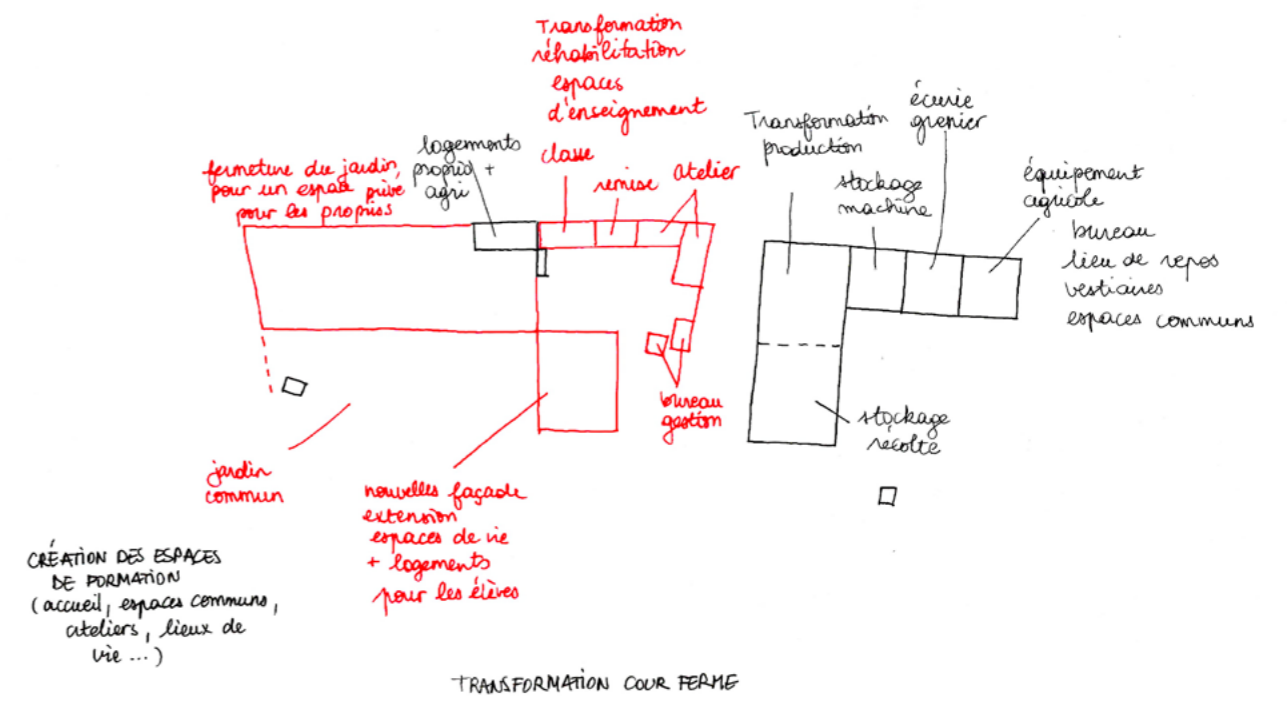 Transformation
réhabilitation
espaces
d'enseignement
fermeture du jardin,
pour un espace privé
pour les proprios
logements
proprio +
agri
classe
remise
atelier
Transformation
production
écurie
grenier
stockage
machine
équipement
agricole
bureau
lieu de repos
vestiaires
espaces communs
bureau
gestion
stockage
récolte
jardin
commun
nouvelles façade
extension
espaces de vie
+ logements
pour les élèves
CRÉATION DES ESPACES
DE FORMATION
(accueil, espaces communs,
ateliers, lieux de
vie ...)
TRANSFORMATION COUR FERME